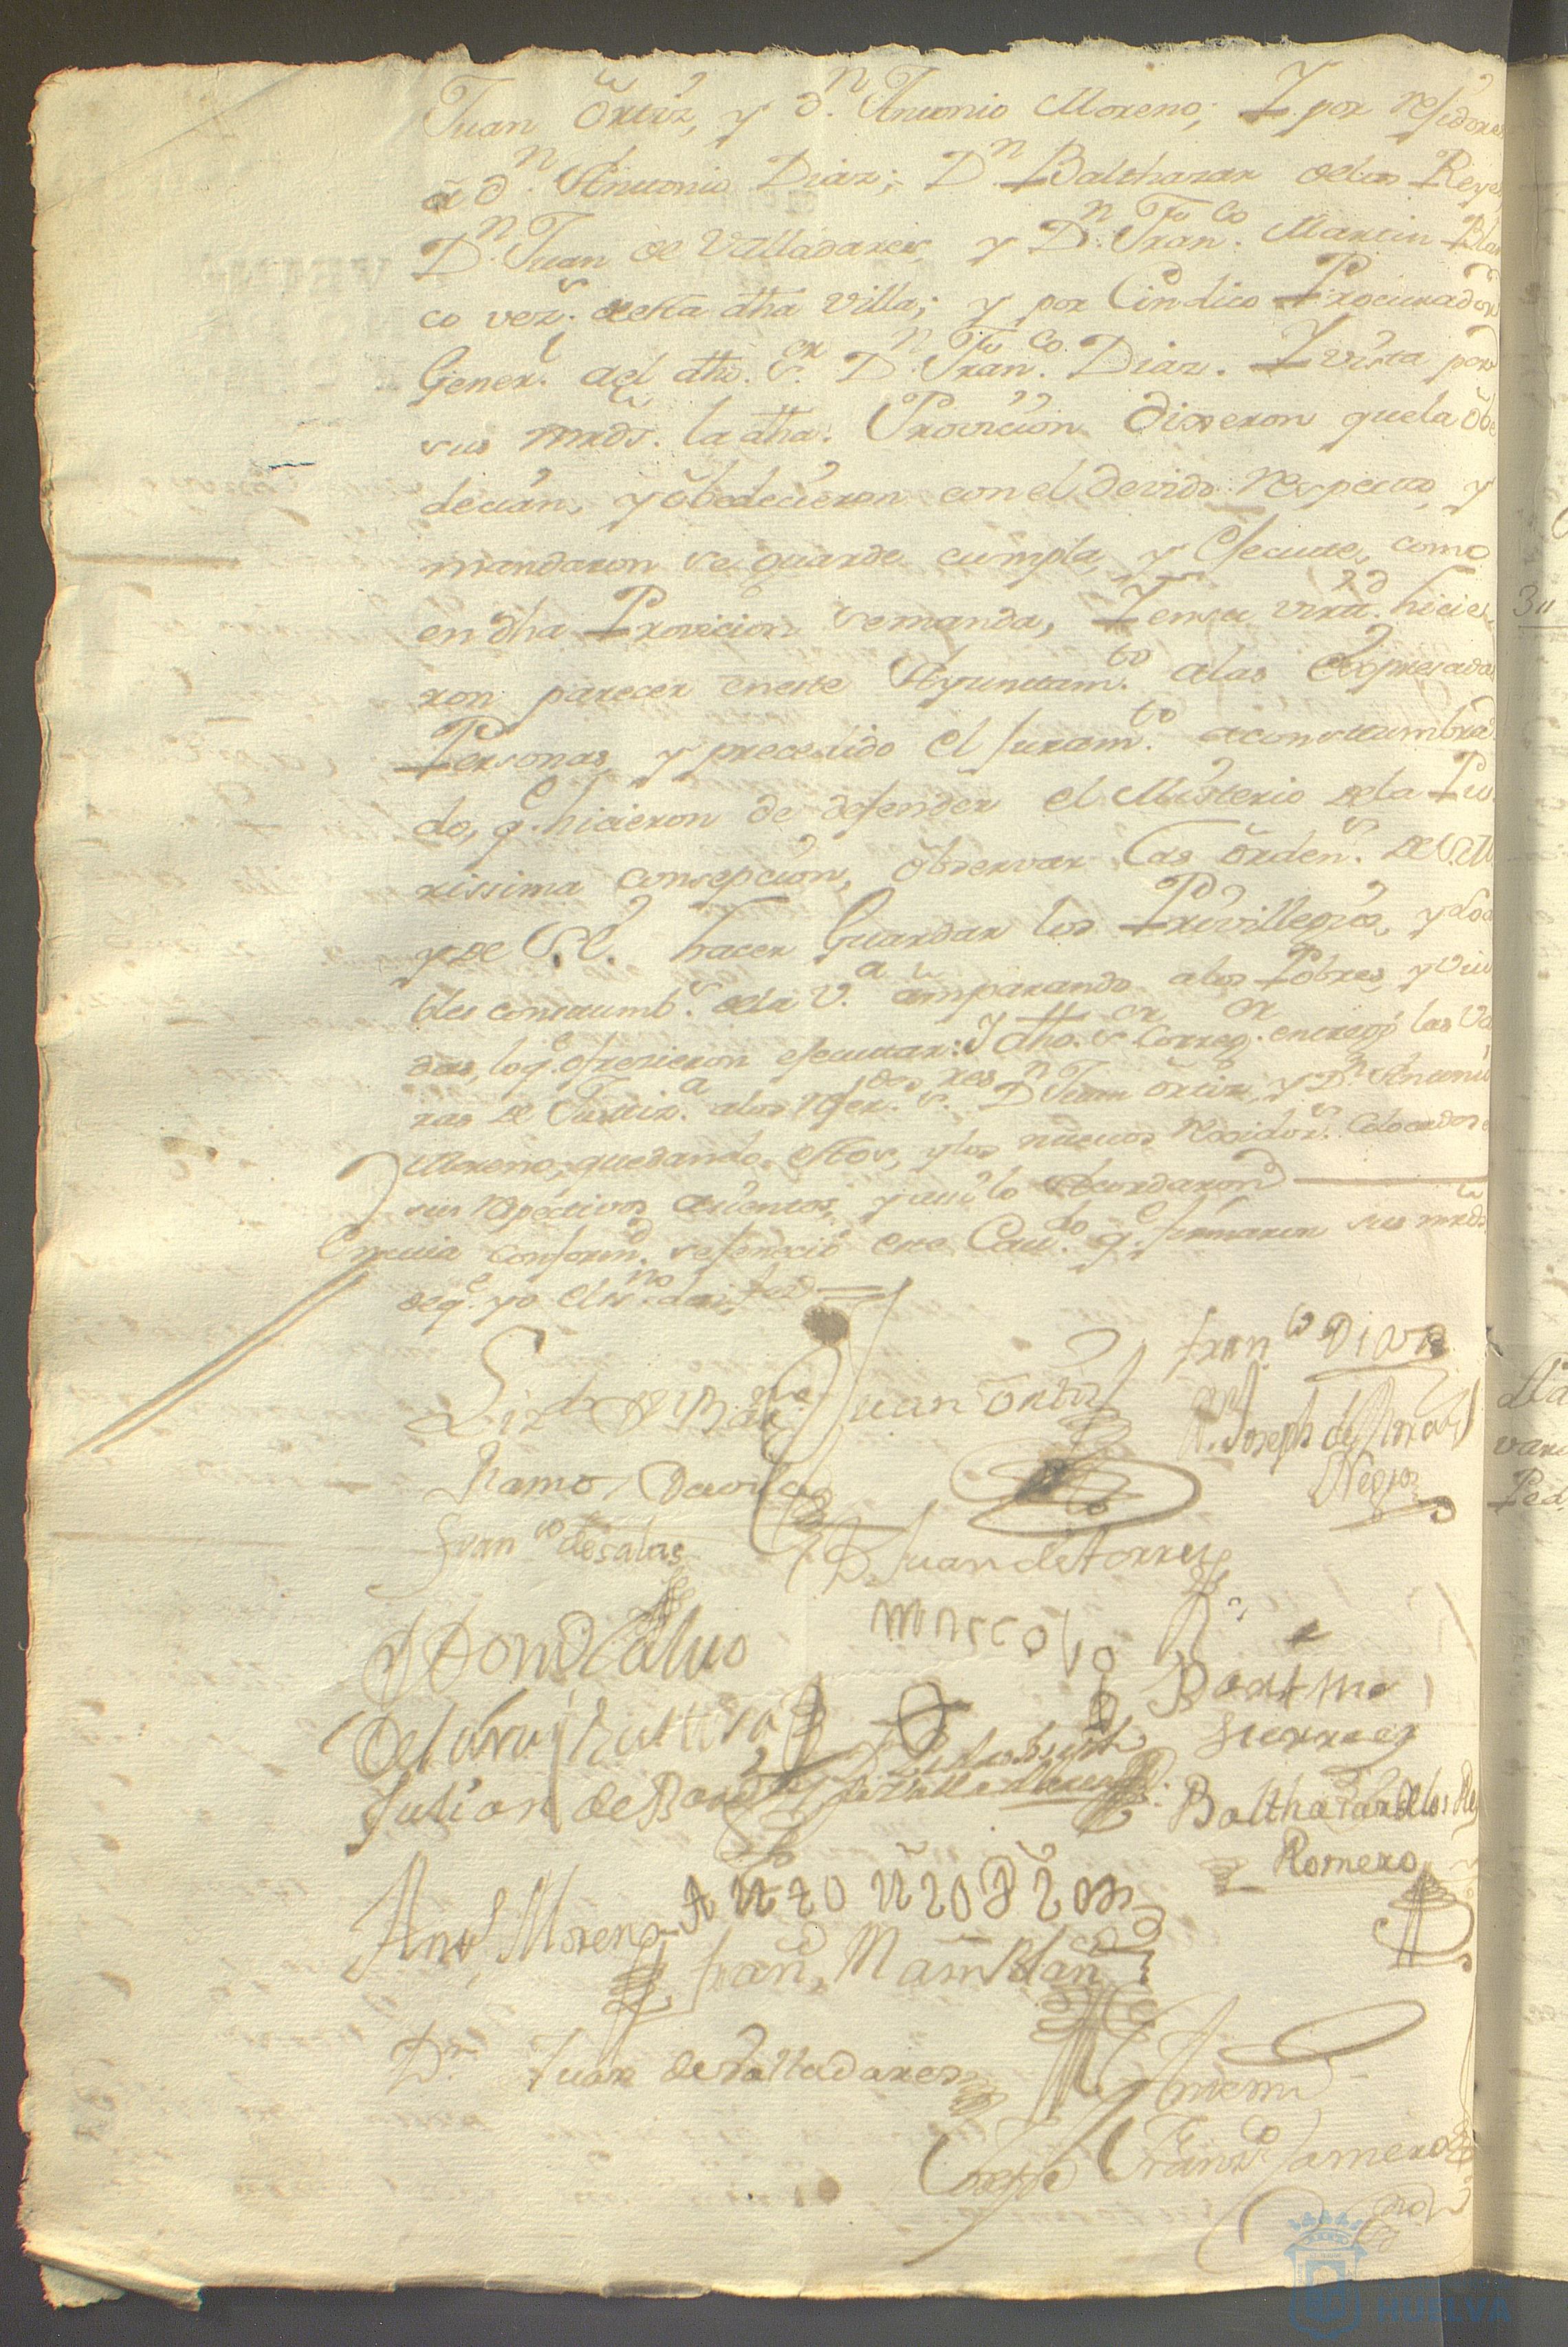 Juan Ortiz, y dn. Antonio Moreno; Y por residores
a dn. Antonio Diaz; Dn. Balthazar delos Reyes
Dn. Juan de Valladares, y Dn. Franco. Martin Blan
co vezs. desta dha villa; y por Cindico Procurador
Generl. ael dho. sr. Dn. Franco. Diaz. Y vista por
sus mrds. la dha. Provicion dixeron quela obe
decian, y obedecieron con el devido respecto, y
mandaron se guarde cumpla, y esecute, como
en dha Provicion se manda, Y en su virtd. hicie
ron parecer en este Ayuntamto. alas Expresadas
Personas, y precedido el Juramto. aconstumbra
do, qe. hicieron de defender el Misterio dela Pu
rissima consepcion, observar las ordens. de S.M
y de S.E. hacer Guardar los Privillegios, y Loa
bles constumbs. dela Va. amparando alos Pobres, y viu
das, lo qe. ofrezieron esecutar: Y dho. sr. Corregor. entregó las Va
ras de Justiza. alos referdos. sres. Dn Juan Ortiz, y Dn. Antonio
Moreno, quedando estos, y los nuevos Regidors. colocados en
sus respectivos acientos, y assi lo Acordaron
En cuia conformd. se fenecio este Cavdo. qe. firmaron sus mrds
de qe. yo el ssno. doi fee =
Franco Diaz
Lizdo Dn
Juan Ortiz
Dn. Joseph de
Ramos Davila
Negron
Franco de salas
Dn Juan de torres
Bartme
Julian de
Balthazar de los Rey
Romero
Anto Moreno
Antonio Dias
Fran Martn Blan
Dn. Juan de Valladares
Antemi
HUELVA